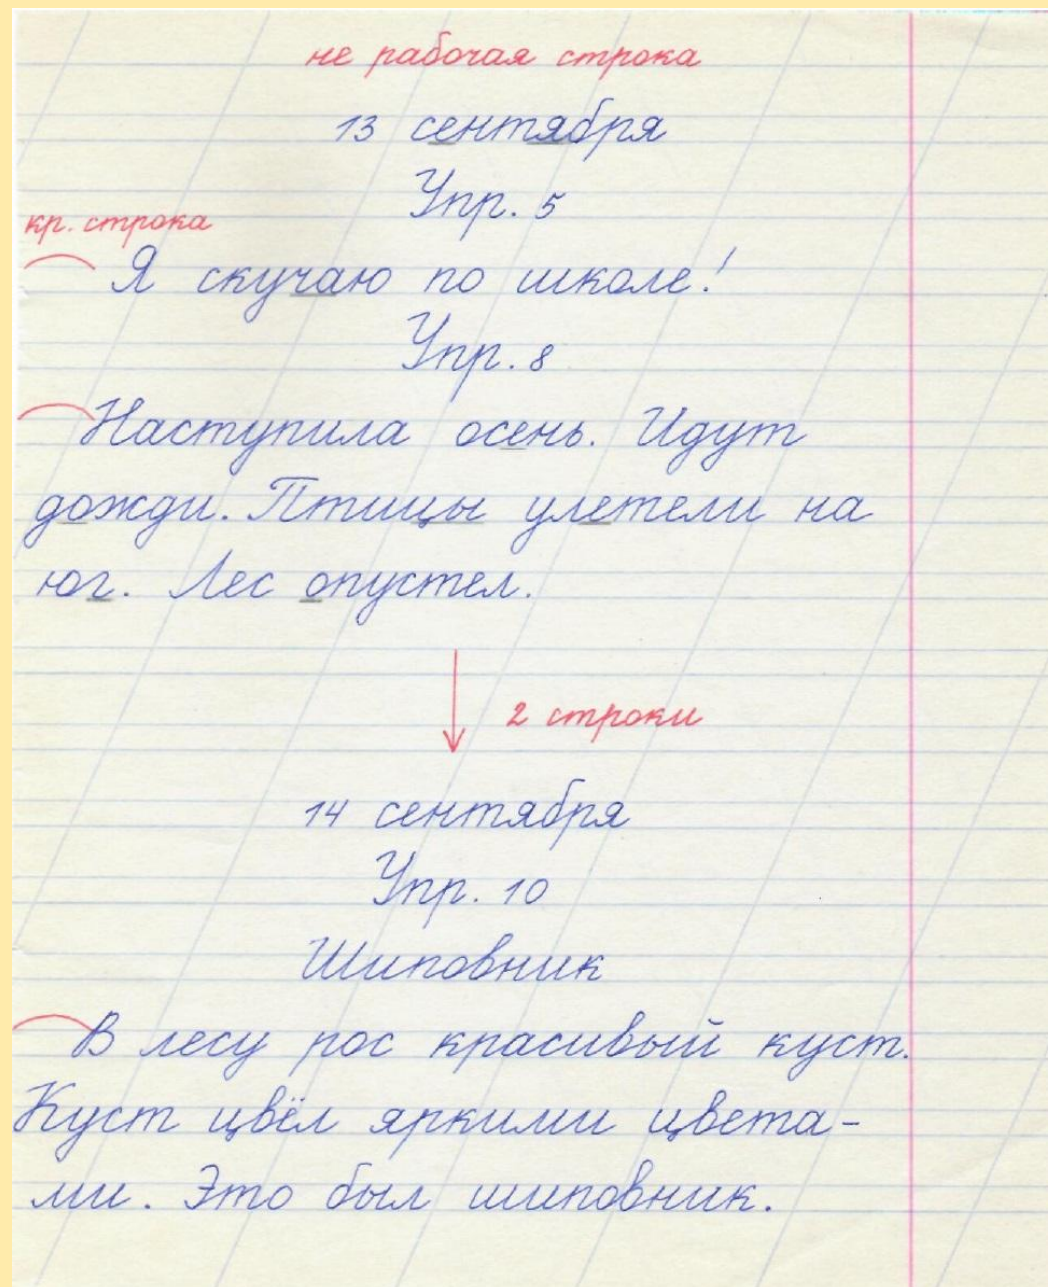 не рабочая строка
13 сентября
Упр. 5
кр. строка
Я скучаю по школе!
Упр. 8
Наступила осень. Идут
дожди. Птицы улетели на
юг. Лес опустел.
2 строки
14 сентября
Упр. 10
Шиповник
В лесу рос красивый куст.
Куст цвёл яркими цвета-
ми. Это был шиповник.